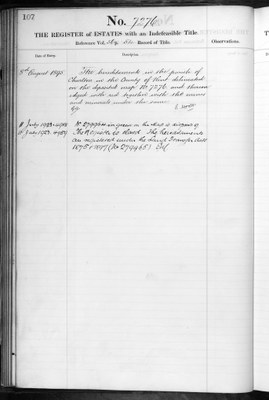 107
No. 7276
THE REGISTER of ESTATES with an Indefeasible Title.
Reference Vol. Record of Title.
Observations.
Date of Entry.
Description
3rd August 1893
The hereditaments in the parish of
Charlton in the County of Kent delineated
on the deposited map No. 7276 and thereon
edged with red together with the mines
and minerals under the same
11 July 1923
No. 279965 is given in the
The Register is closed. The hereditaments
are registered under the Land Transfer Acts
1875 & 1897 (No 279965)